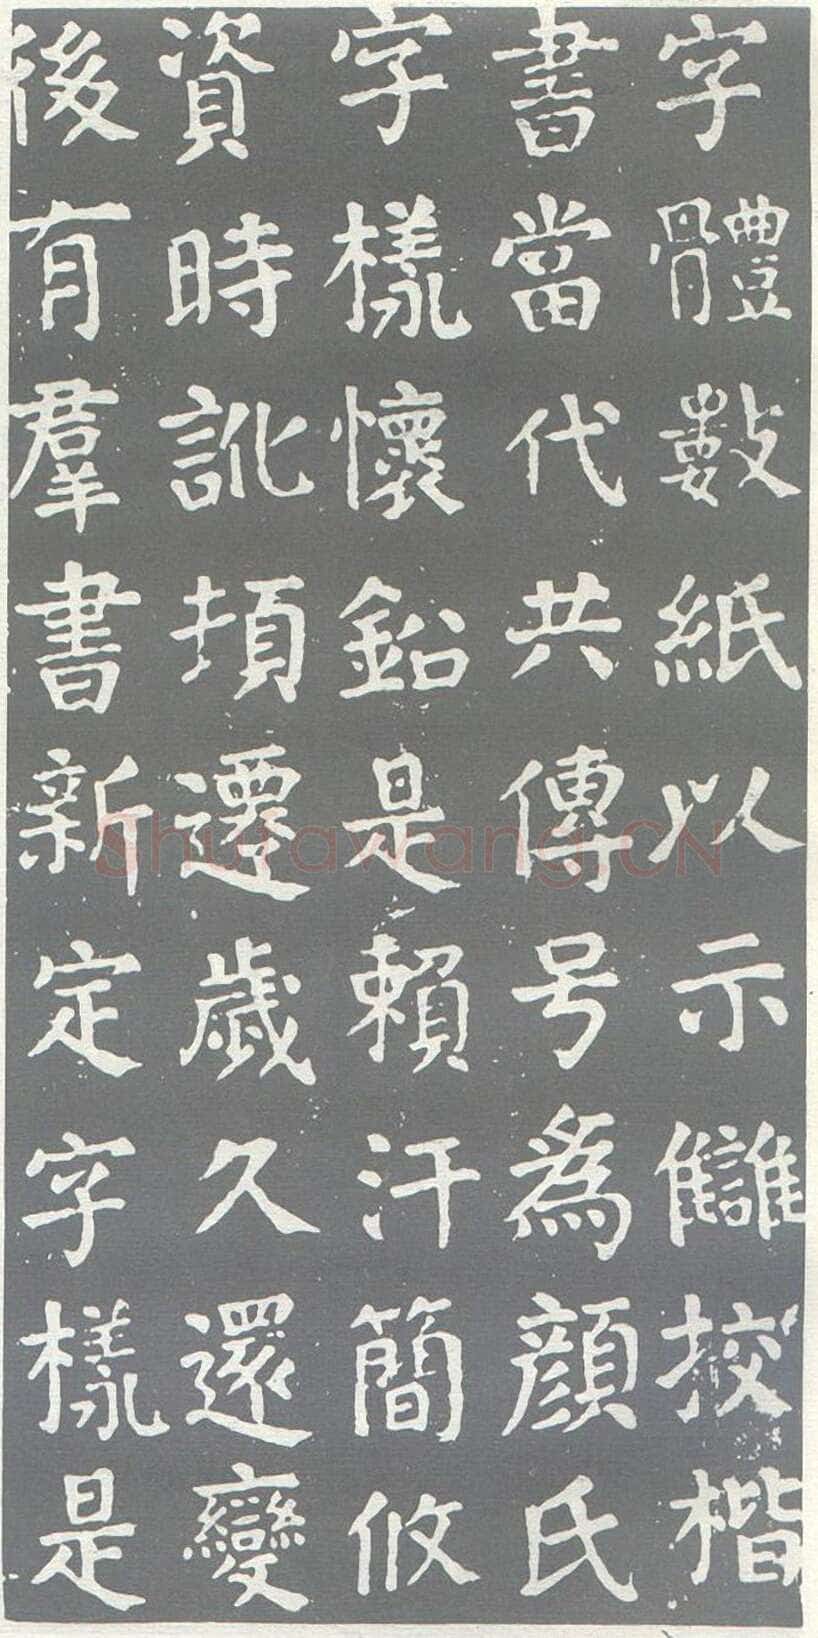 字體數紙以示讎挍楷
書當代共傳号為顏氏
字樣懷鈆是賴汗簡攸
資時訛頓遷歲久還變
後有羣書新定字樣是
Shufawang.CN